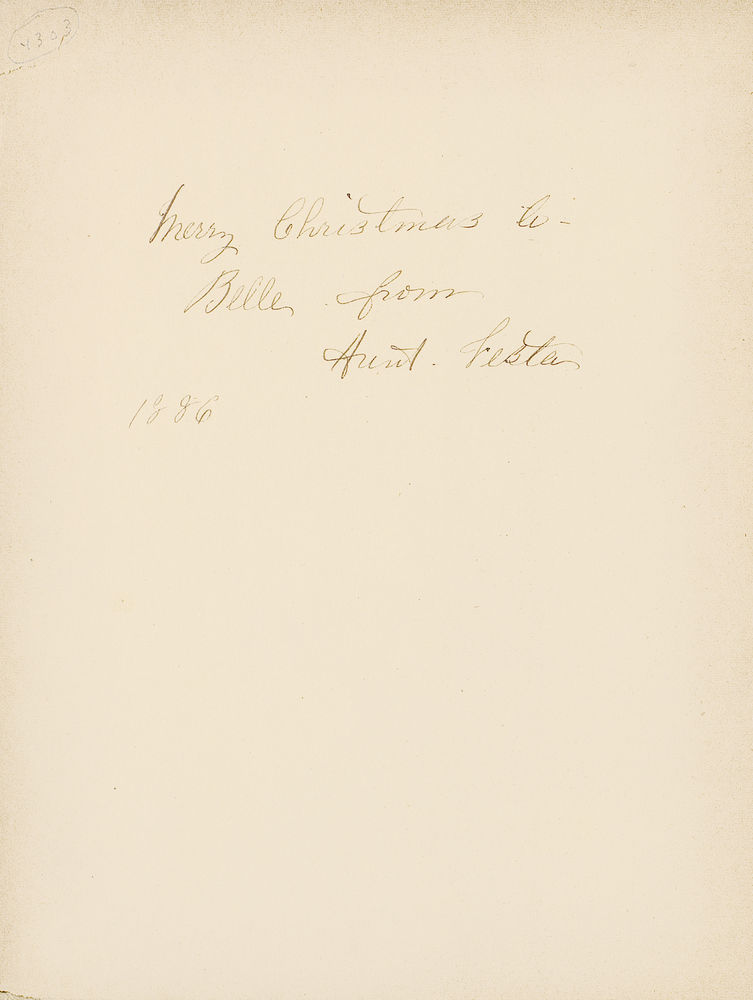 4303
Merry Christmas to -
Belle from
Aunt. Vesta
1886